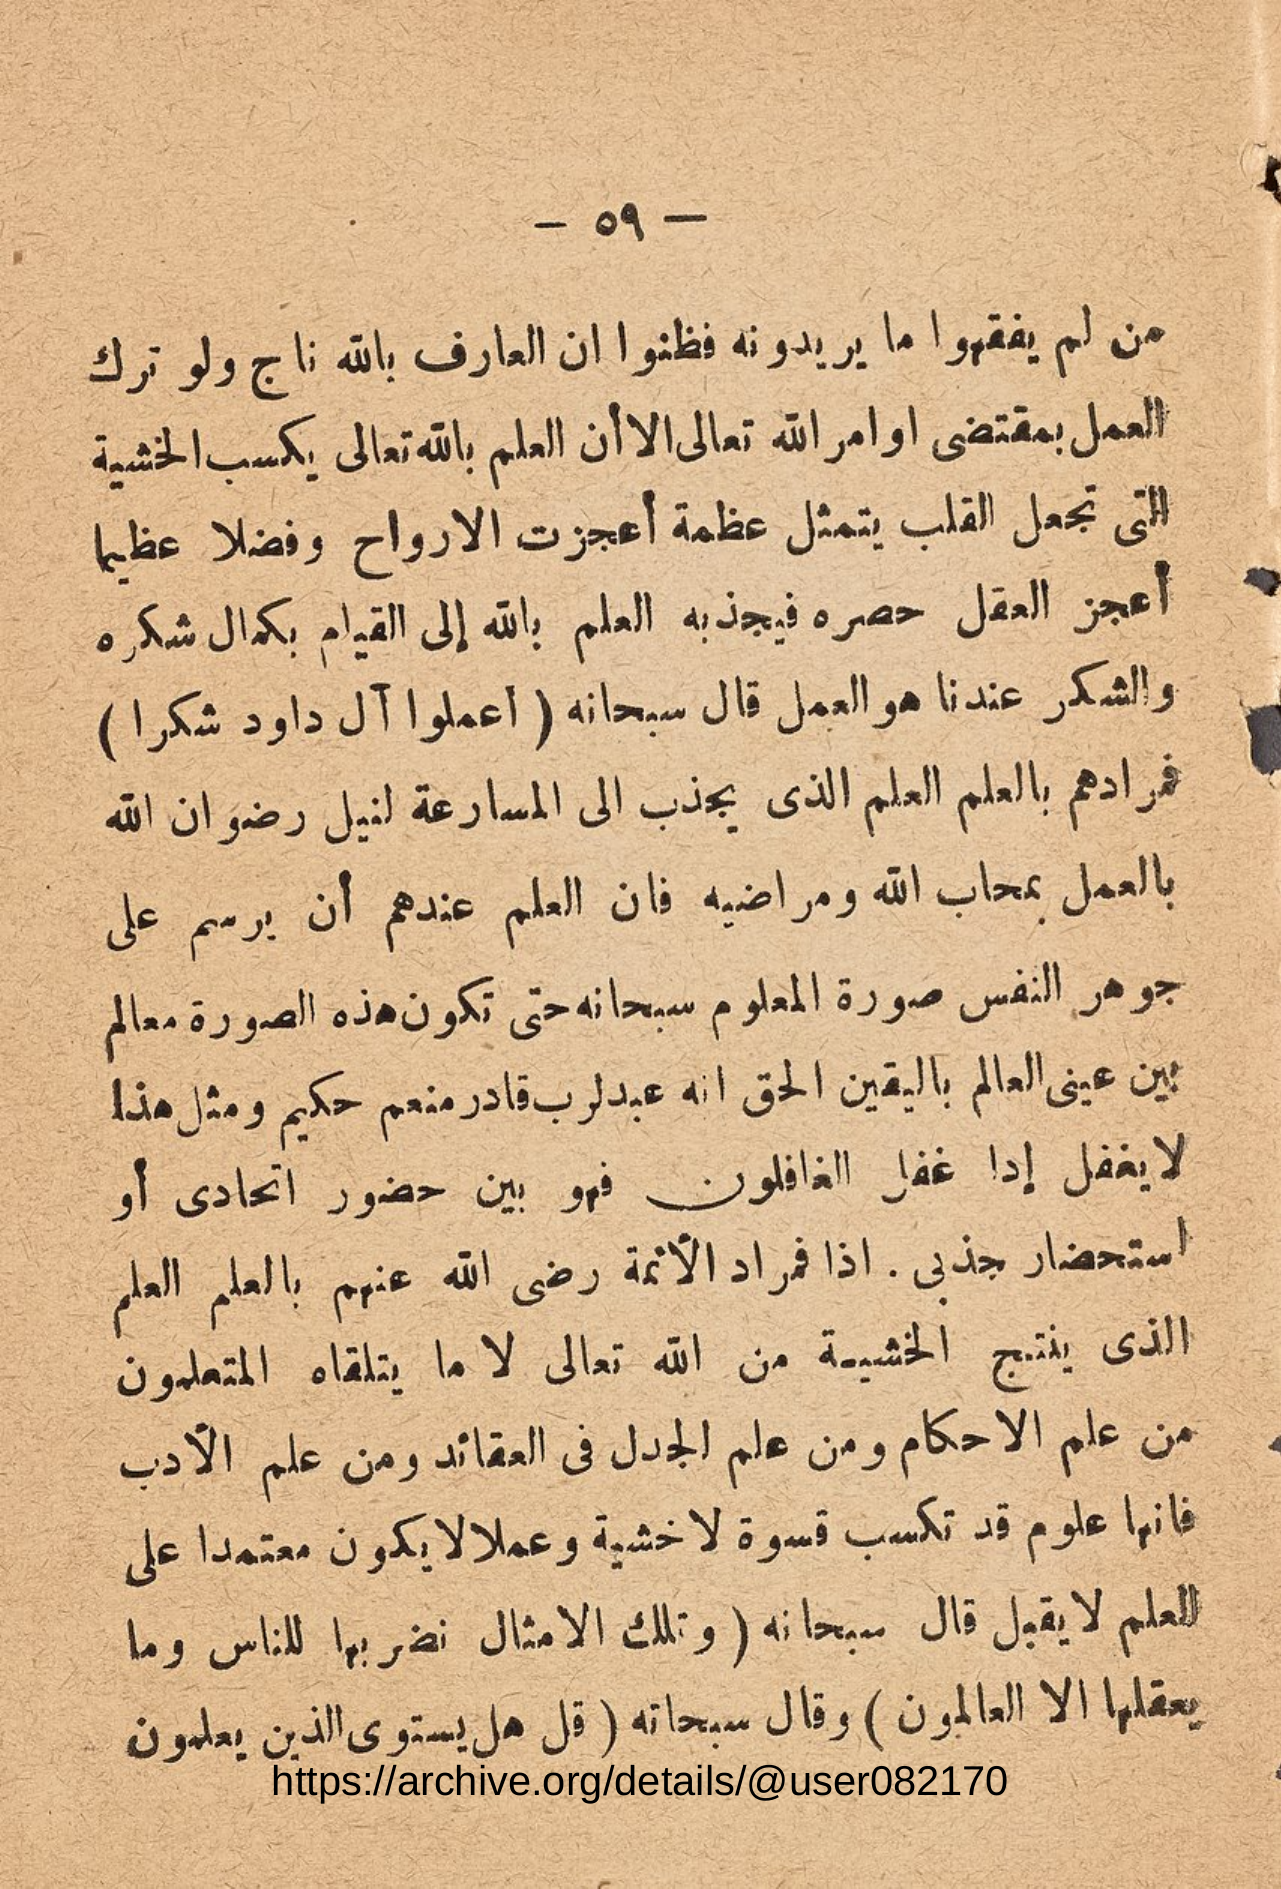 — ٥٩ —
من لم يفقهوا ما يريدونه فظنوا ان العارف بالله ناج ولو ترك
العمل بمقتضى اوامر الله تعالى الا أن العلم بالله تعالى يكسب الخشية
التى تجعل القلب يتمثل عظمة أعجزت الارواح وفضلا عظيما
أعجز العقل حصره فيجذبه العلم بالله إلى القيام بكمال شكره
والشكر عندنا هو العمل قال سبحانه ( اعملوا آل داود شكرا )
فمرادهم بالعلم العلم الذى يجذب الى المسارعة لنيل رضوان الله
بالعمل بمحاب الله ومراضيه فان العلم عندهم أن يرسم على
جوهر النفس صورة المعلوم سبحانه حتى تكون هذه الصورة معالم
بين عينى العالم باليقين الحق انه عبد لرب قادر منعم حكيم ومثل هذا
لا يغفل إدا غفل الغافلون فهو بين حضور اتحادى أو
استحضار جذبى . اذا فمراد الأئمة رضى الله عنهم بالعلم العلم
الذى ينتج الخشية من الله تعالى لا ما يتلقاه المتعلمون
من علم الاحكام ومن علم الجدل فى العقائد ومن علم الأدب
فانها علوم قد تكسب قسوة لا خشية وعملا لا يكون معتمدا على
العلم لا يقبل قال سبحانه ( وتلك الامثال نضربها للناس وما
يعقلها الا العالمون ) وقال سبحاته ( قل هل يستوى الذين يعلمون
https://archive.org/details/@user082170